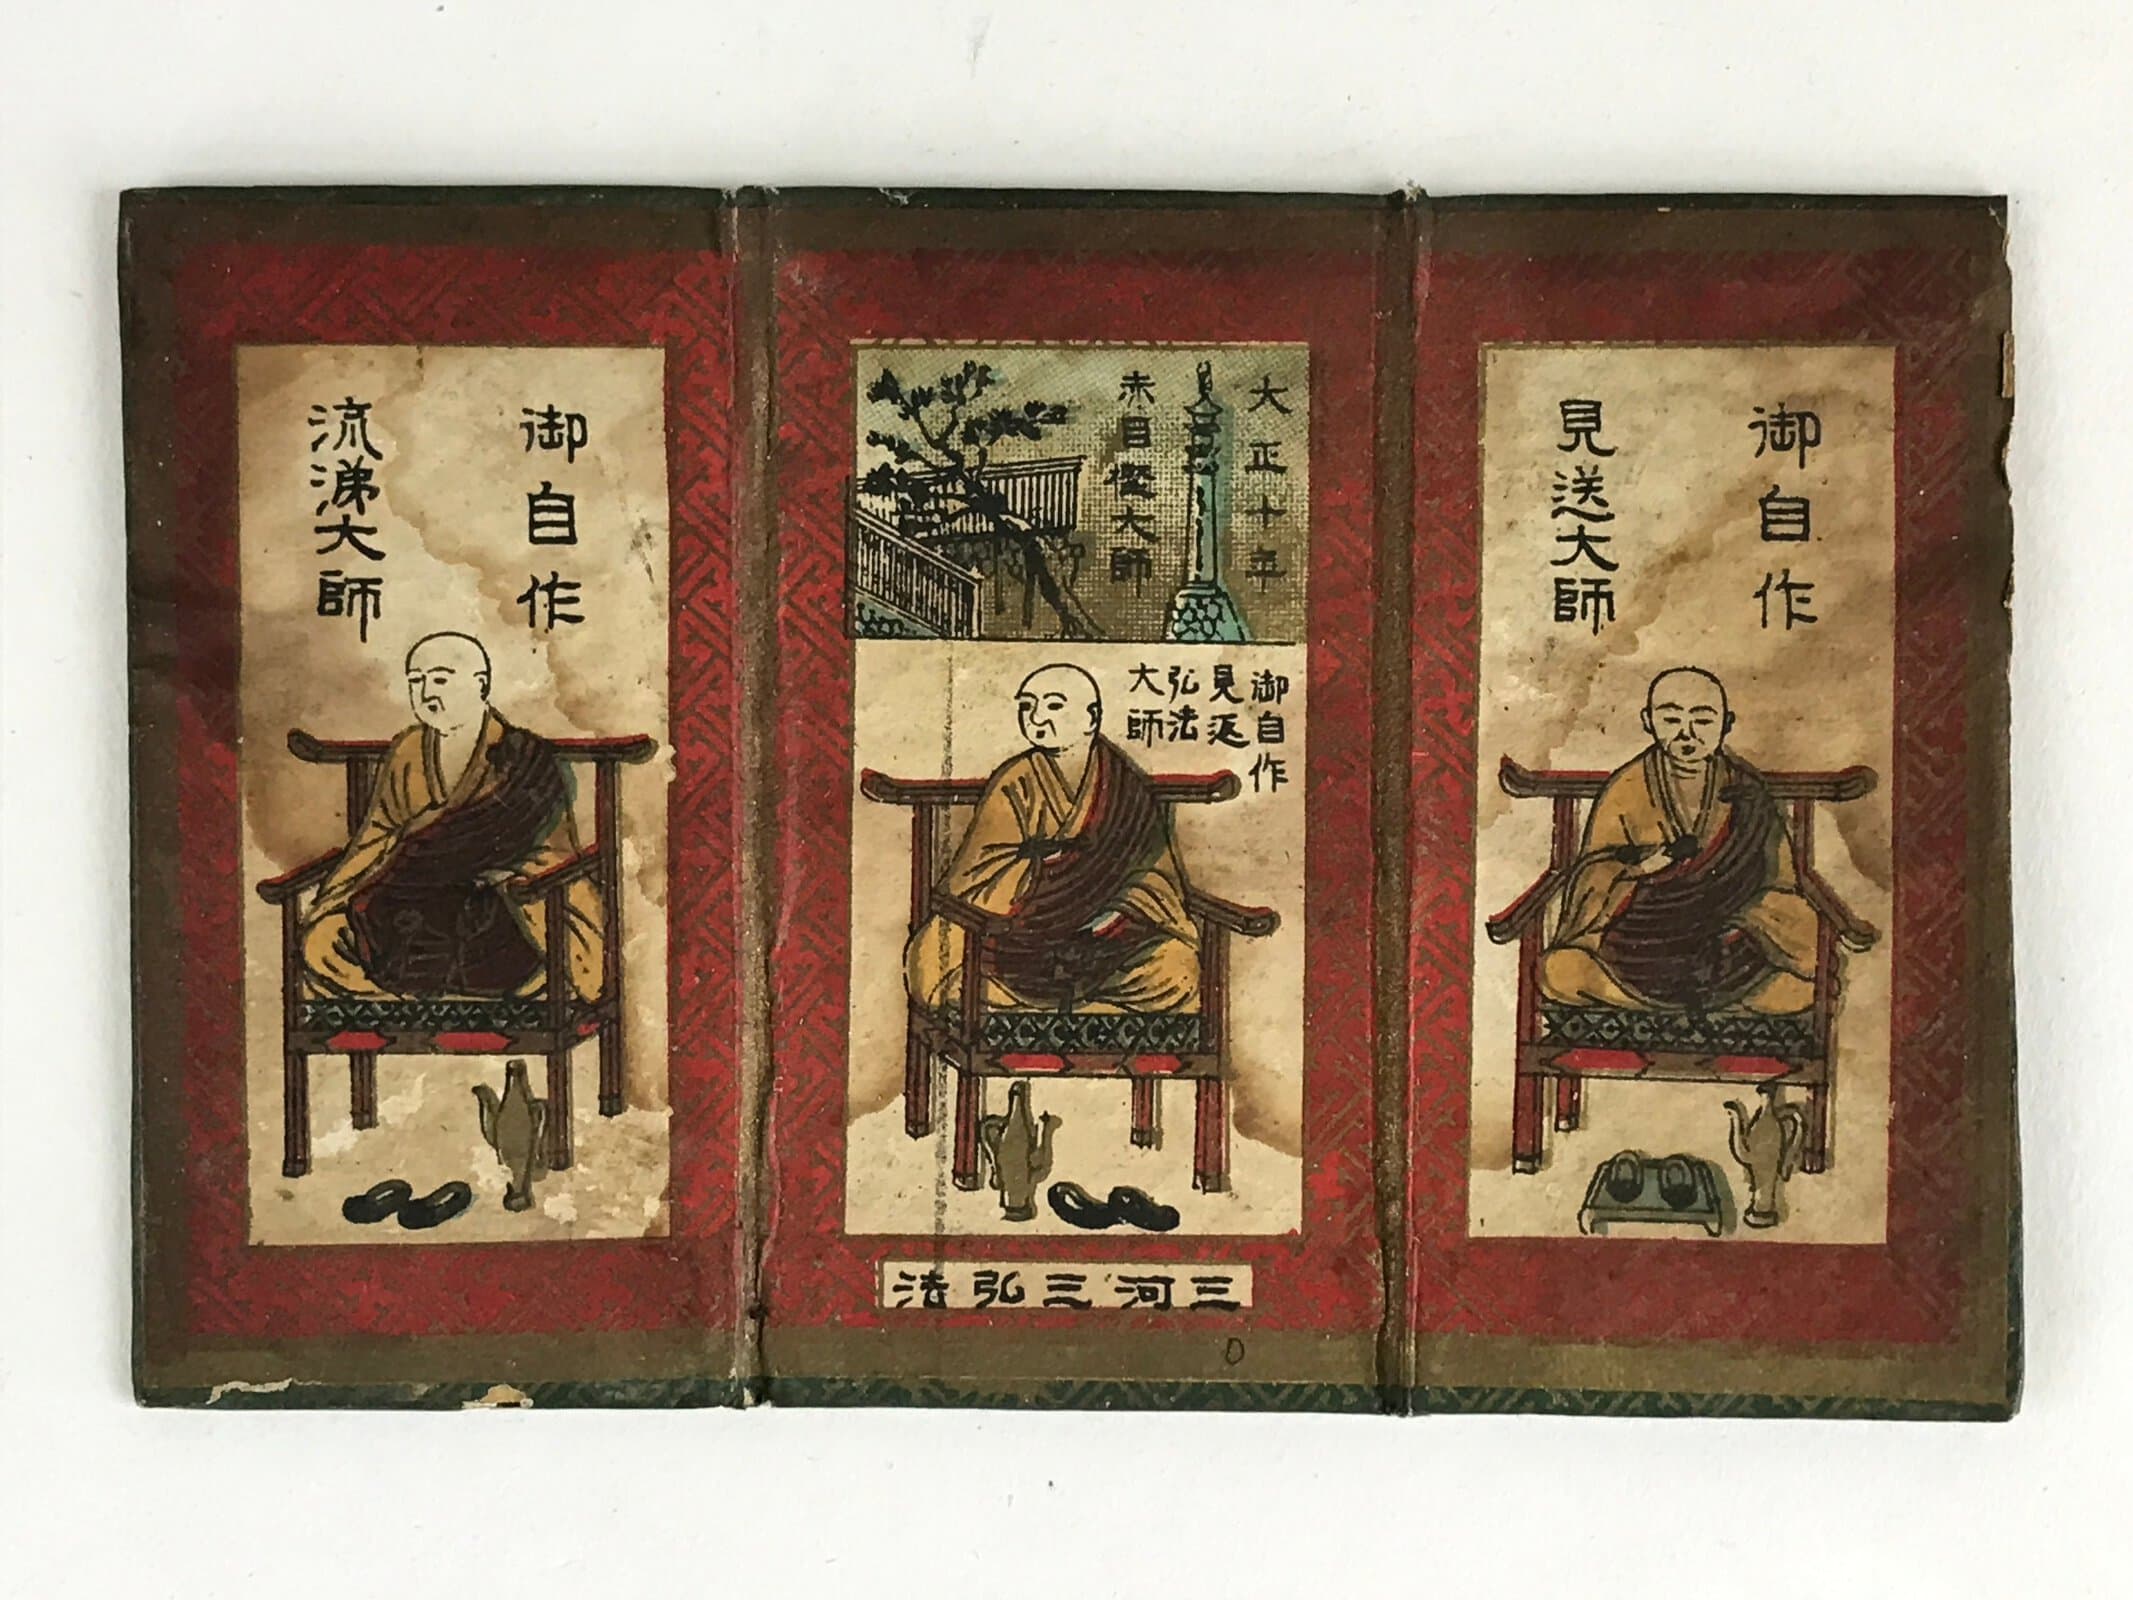 御自作
見送大師
大正十年
赤目樫大師
御自作
見返
弘法
大師
三河三弘法
御自作
流涕大師